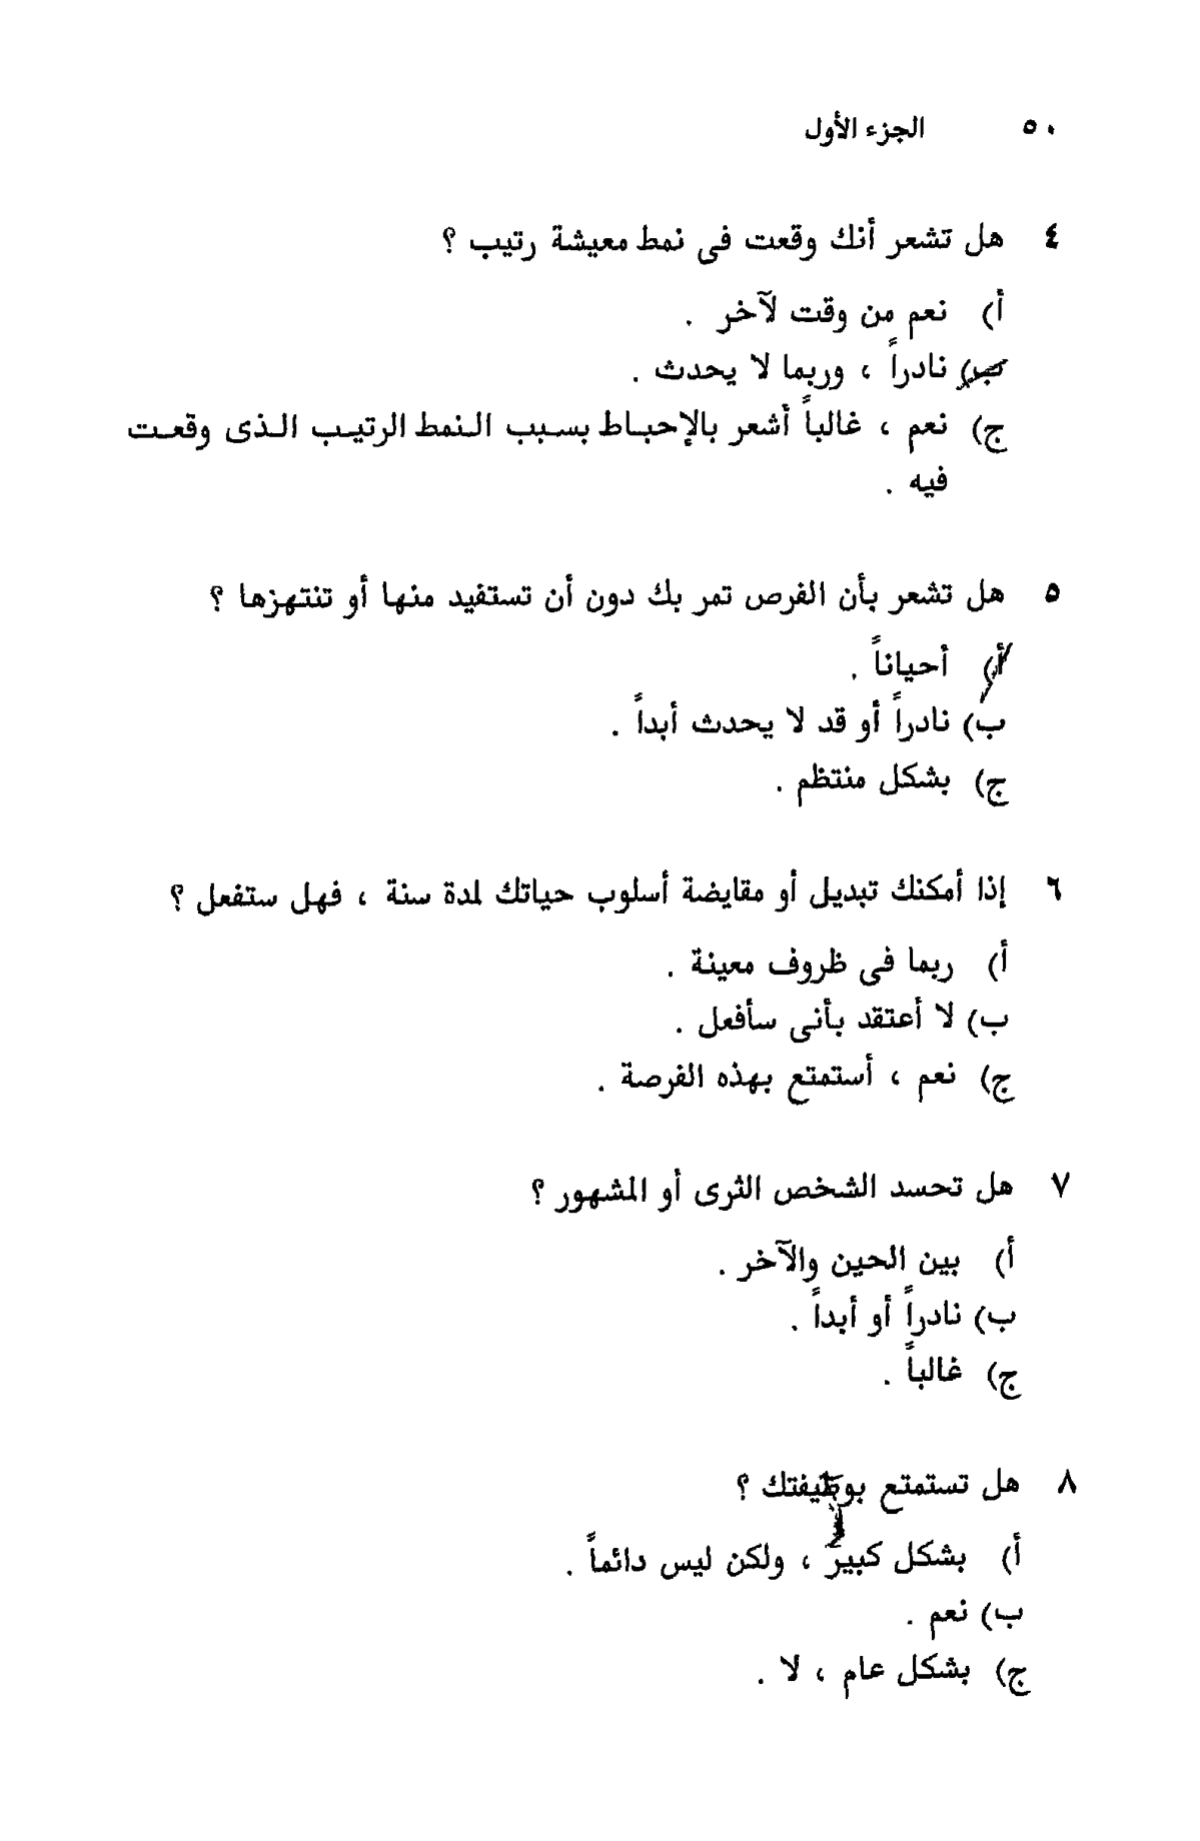 ٥٠ الجزء الأول
٤ هل تشعر أنك وقعت فى نمط معيشة رتيب ؟
أ) نعم من وقت لآخر .
ب) نادراً ، وربما لا يحدث .
ج) نعم ، غالباً أشعر بالإحباط بسبب النمط الرتيب الذى وقعت
فيه .
٥ هل تشعر بأن الفرص تمر بك دون أن تستفيد منها أو تنتهزها ؟
أ) أحياناً .
ب) نادراً أو قد لا يحدث أبداً .
ج) بشكل منتظم .
٦ إذا أمكنك تبديل أو مقايضة أسلوب حياتك لمدة سنة ، فهل ستفعل ؟
أ) ربما فى ظروف معينة .
ب) لا أعتقد بأنى سأفعل .
ج) نعم ، أستمتع بهذه الفرصة .
٧ هل تحسد الشخص الثرى أو المشهور ؟
أ) بين الحين والآخر .
ب) نادراً أو أبداً .
ج) غالباً .
٨ هل تستمتع بوظيفتك ؟
أ) بشكل كبير ، ولكن ليس دائماً .
ب) نعم .
ج) بشكل عام ، لا .